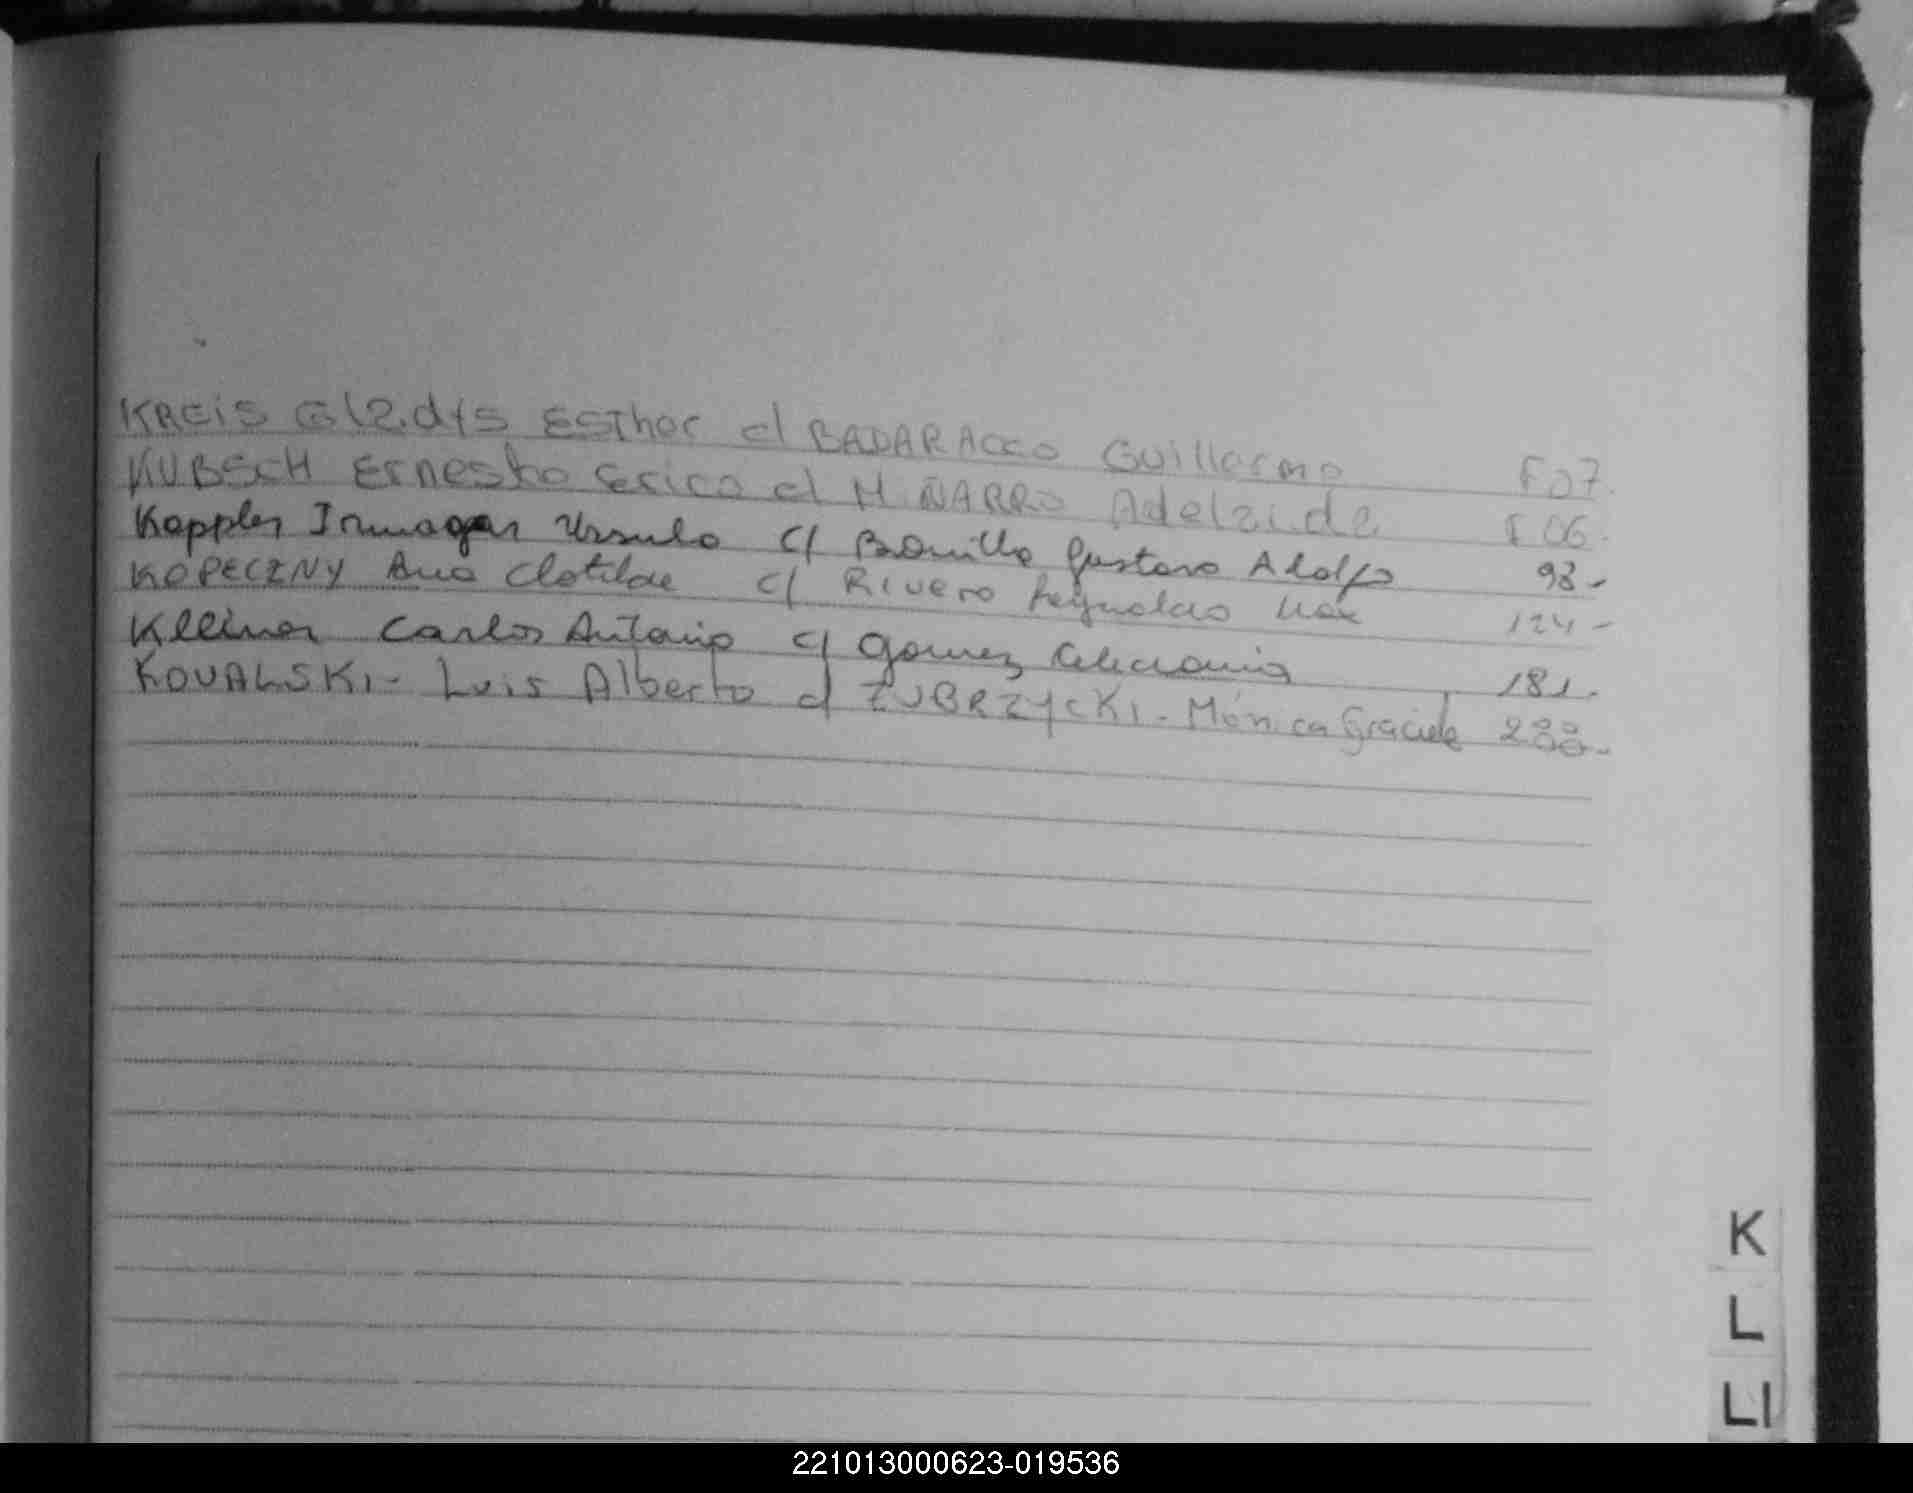 KREiS Gladys ESTher c/ BADARACCO Guillermo F 07.
KUBSCH Ernesto Erico c/ MiÑARRO Adelaida F 06.
Kappler Irmagar Ursula c/ Bonilla Gustavo Adolfo 98-
KOPECZNY Ana Clotilde c/ Rivero Reynaldo 124-
Kleiner Carlos Antonio c/ Gomez 181.
KOVALSKI- Luis Alberto c/ ZUBRZYCKI- Mónica Graciela
K
L
Ll
221013000623-019536